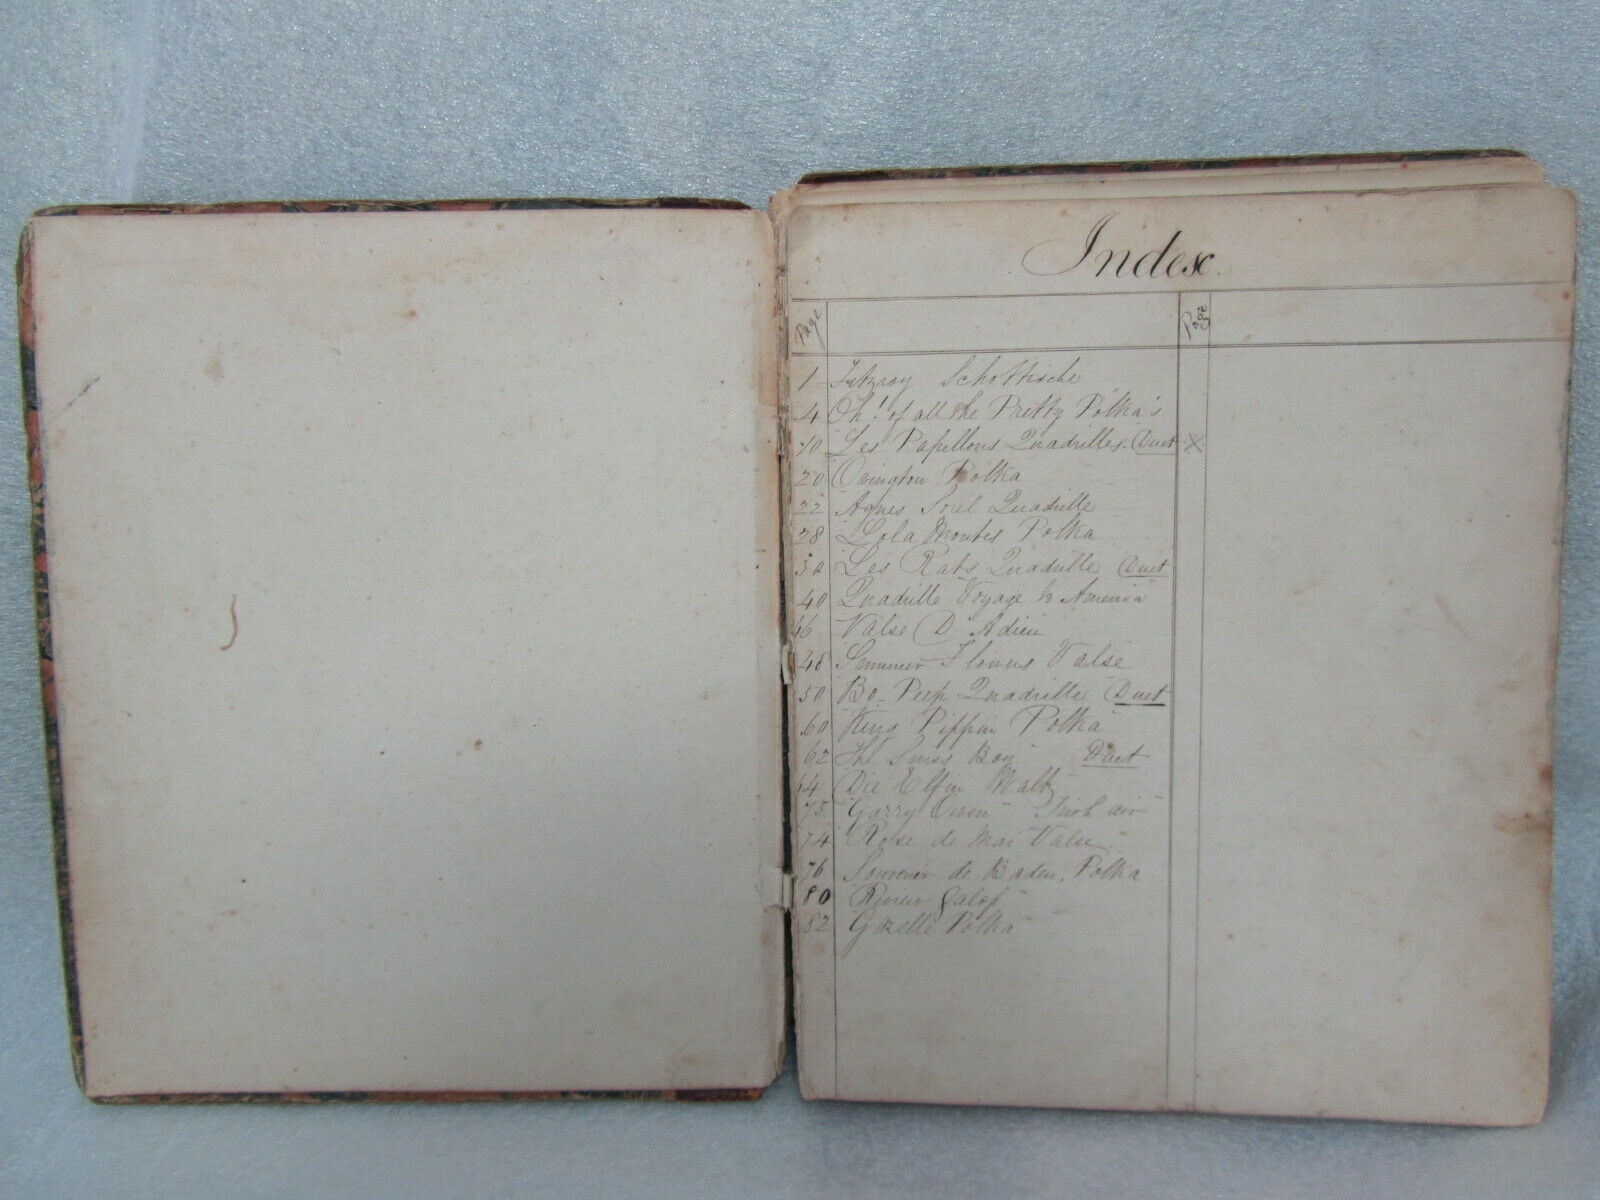 Index
Page
Page
1 Fitzroy Schottische
4 Oh! of all the Pretty Polka's
10 Les Papillons Quadrilles. Duet X
20 Ovington Polka
22 Agnes Sorel Quadrille
28 Lola Montes Polka
30 Les Rats Quadrille Duet
40 Quadrille Voyage to America
46 Valse D'Adieu
48 Summer Flowers Valse
50 Bo-Peep Quadrille Duet
60 King Pippin Polka
62 The Swiss Boy Duet
Die Elfin Waltz
73 "Garry Owen" Irish air
74 Rose de Mai Valse
76 Souvenir de Baden. Polka
80 Review Galop
82 Gazelle Polka